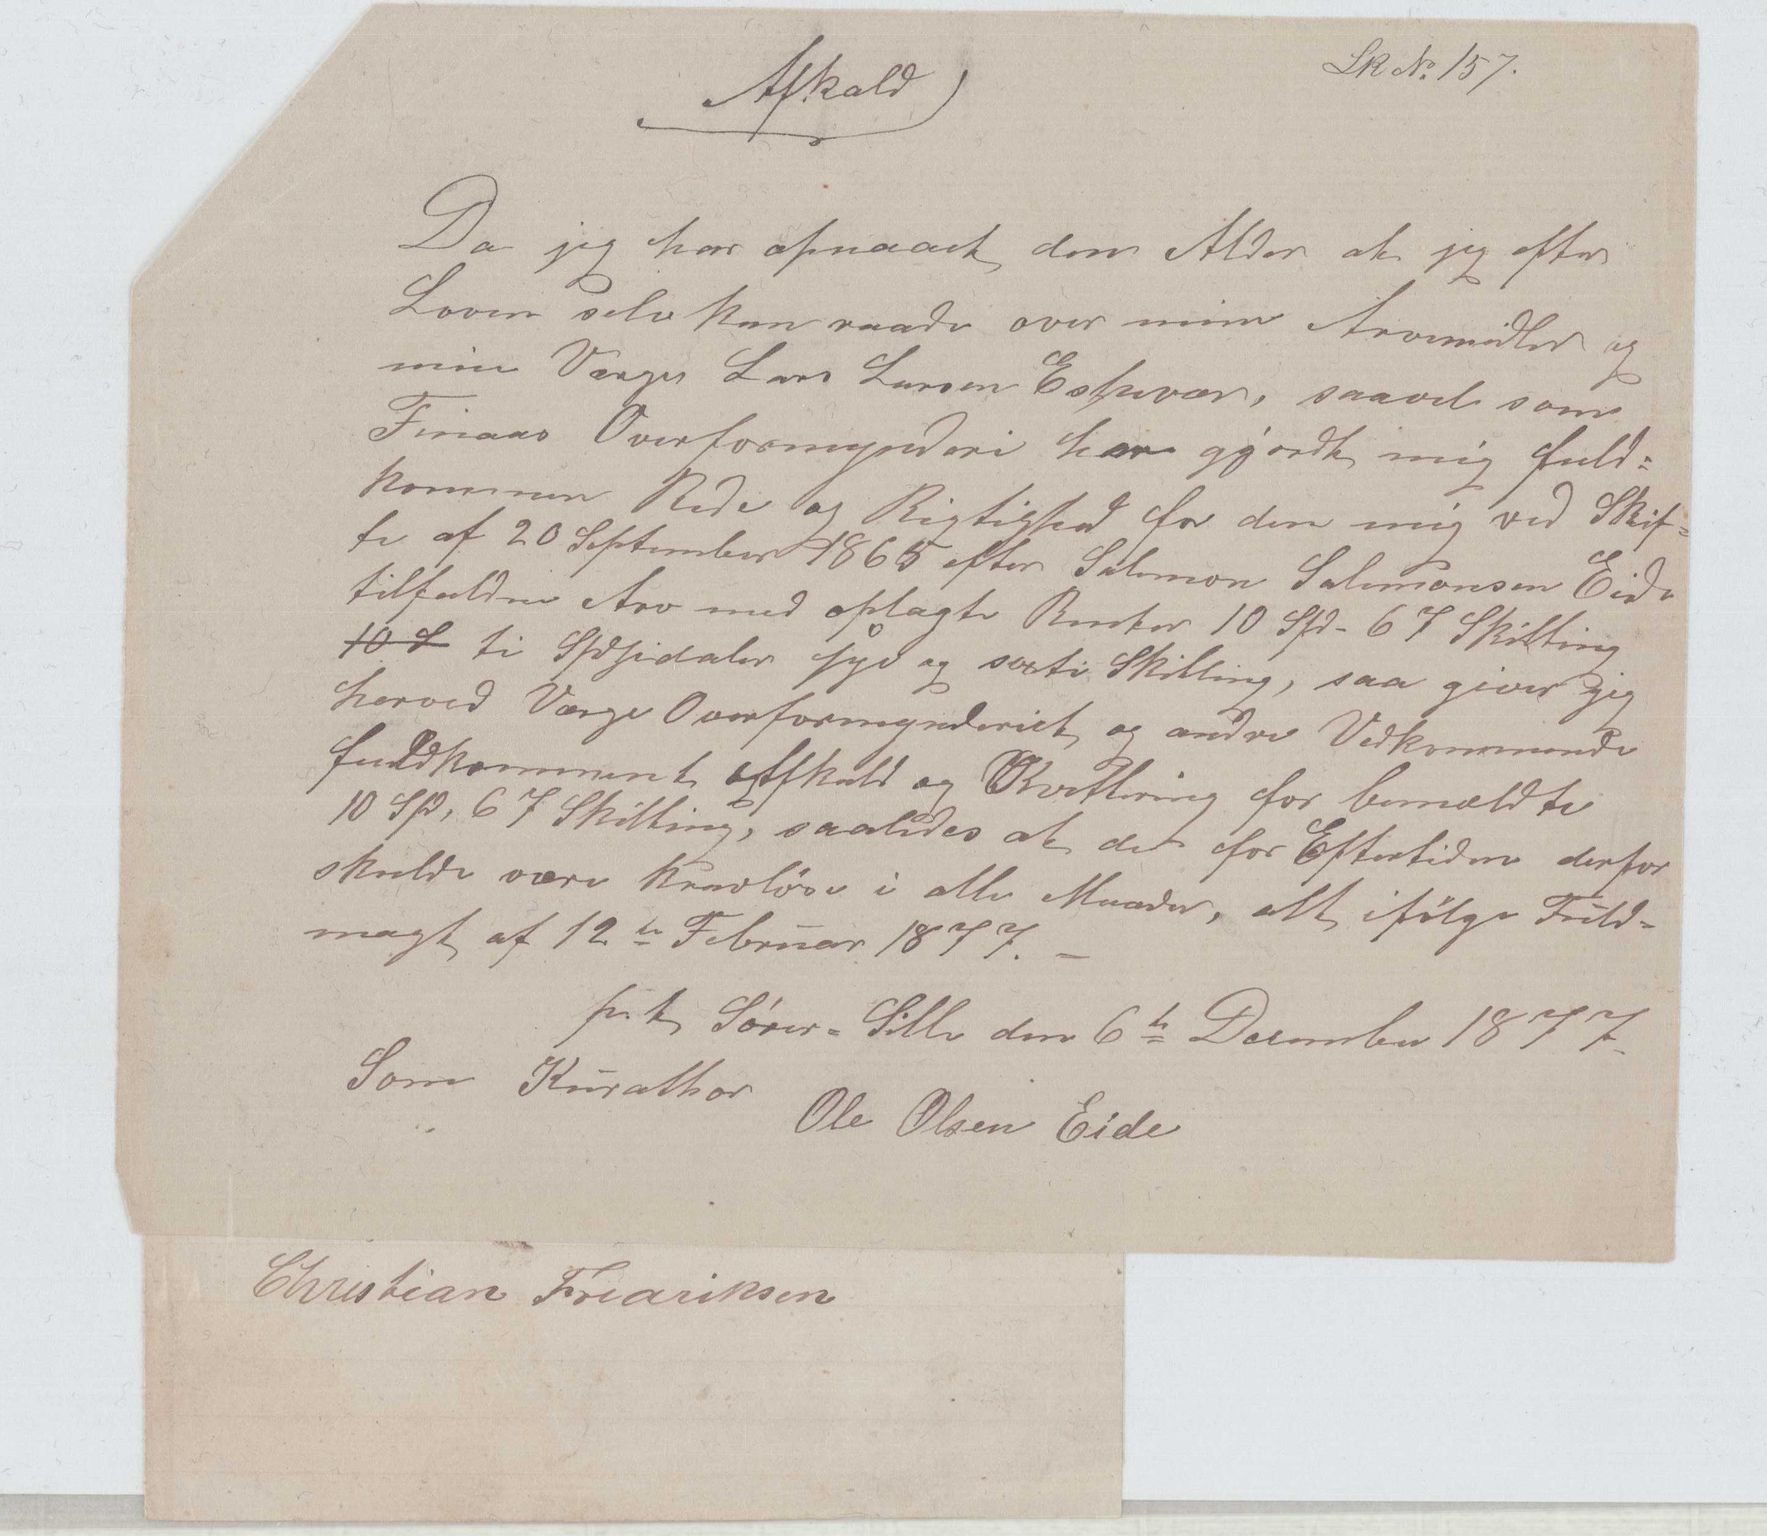 Sk No. 157.
Afkald
Da jeg har opnaaet den Alder at jeg efter
Loven selv kan raade over mine Arvemidler og
min Værge Lars Larsen Eskevær, saavel som
Finaas Overformynderi har gjordt mig fuld=
kommen Rede og Rigtighed for den mig ved Skif=
te af 20 September 1865 efter Salemon Salemonsen Eide
tilfaldne Arv med oplagte Renter 10 Spd. 67 Skilling
ti Spesidaler syv og sexti Skilling, saa giver jeg
herved Værge Overformynderiet og andre Vedkommende
fuldkomment Afkald og Kvittering for bemældte
10 Sp. 67 Skilling, saaledes at de for Eftertiden derfor
skulde være kravløse i alle Maader, alt ifølge Fuld=
magt af 12te Februar 1877. –
p.t. Sörer=Lille den 6te December 1877
Som Kurathor
Ole Olsen Eide
Christian Fredriksen